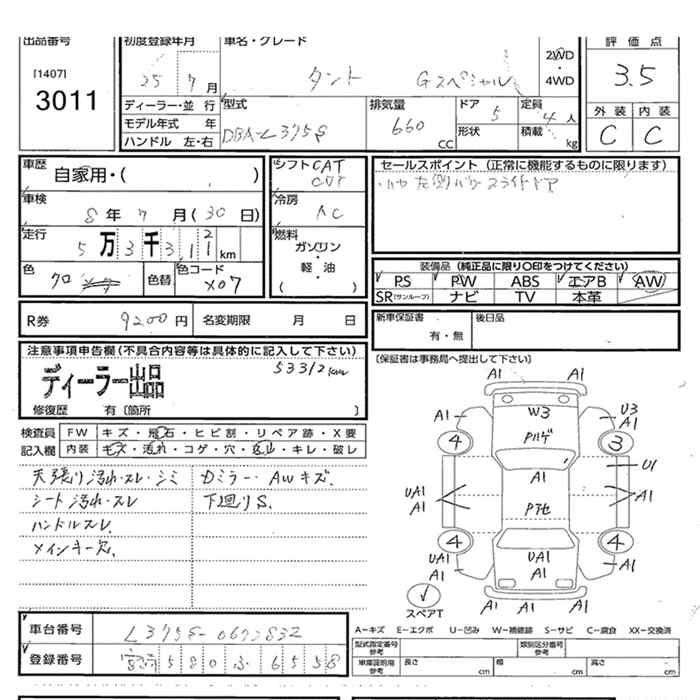 出品番号
[1407]
3011
初度登録年月
25 7月
車名・グレード
タント Gスペシャル
2WD
・
4WD
評価点
3.5
外装 内装
C C
ディーラー・並行
モデル年式 年
ハンドル 左・右
型式
DBA-L375S
排気量
660
CC
ドア
5
形状
定員
4人
積載
kg
車歴
自家用・( )
シフト CAT
車検
8年 7月(30日)
冷房
AC
走行
5万3千3,1 km
燃料
ガソリン
・
軽・油
( )
色
クロ
色替
色コード
X07
セールスポイント (正常に機能するものに限ります)
左側パワースライドドア
装備品 (純正品に限り○印をつけてください)
PS PW ABS エアB AW
SR(サンルーフ) ナビ TV 本革
R券 9200円
名変期限 月 日
新車保証書
有・無
後日品
(保証書は事務局へ提出して下さい)
注意事項申告欄(不具合内容等は具体的に記入して下さい)
53312km
ディーラー出品
修復歴 有〔箇所 〕
検査員
記入欄
FW キズ・飛石・ヒビ割・リペア跡・X要
内装 キズ・汚れ・コゲ・穴・・キレ・破レ
天張り汚れ・スレ・シミ
シート汚れ・スレ
ハンドルスレ.
メインキー欠.
Dミラー・AWキズ.
下廻りS.
A1 A1
A1 W3 U3
A1
4 Pハゲ 3
A1 U1
UA1 A1
A1 Pブセ
4 4
UA1 UA1 UA1
A1 A1 A1
スペアT
A1 A1 A1
車台番号
登録番号
580 6558
A-キズ E-エクボ U-凹み W-補修跡 S-サビ C-腐食 XX-交換済
型式指定番号
参考
類別区分番号
参考
車庫証明用
参考
長さ cm
幅 cm
高さ cm